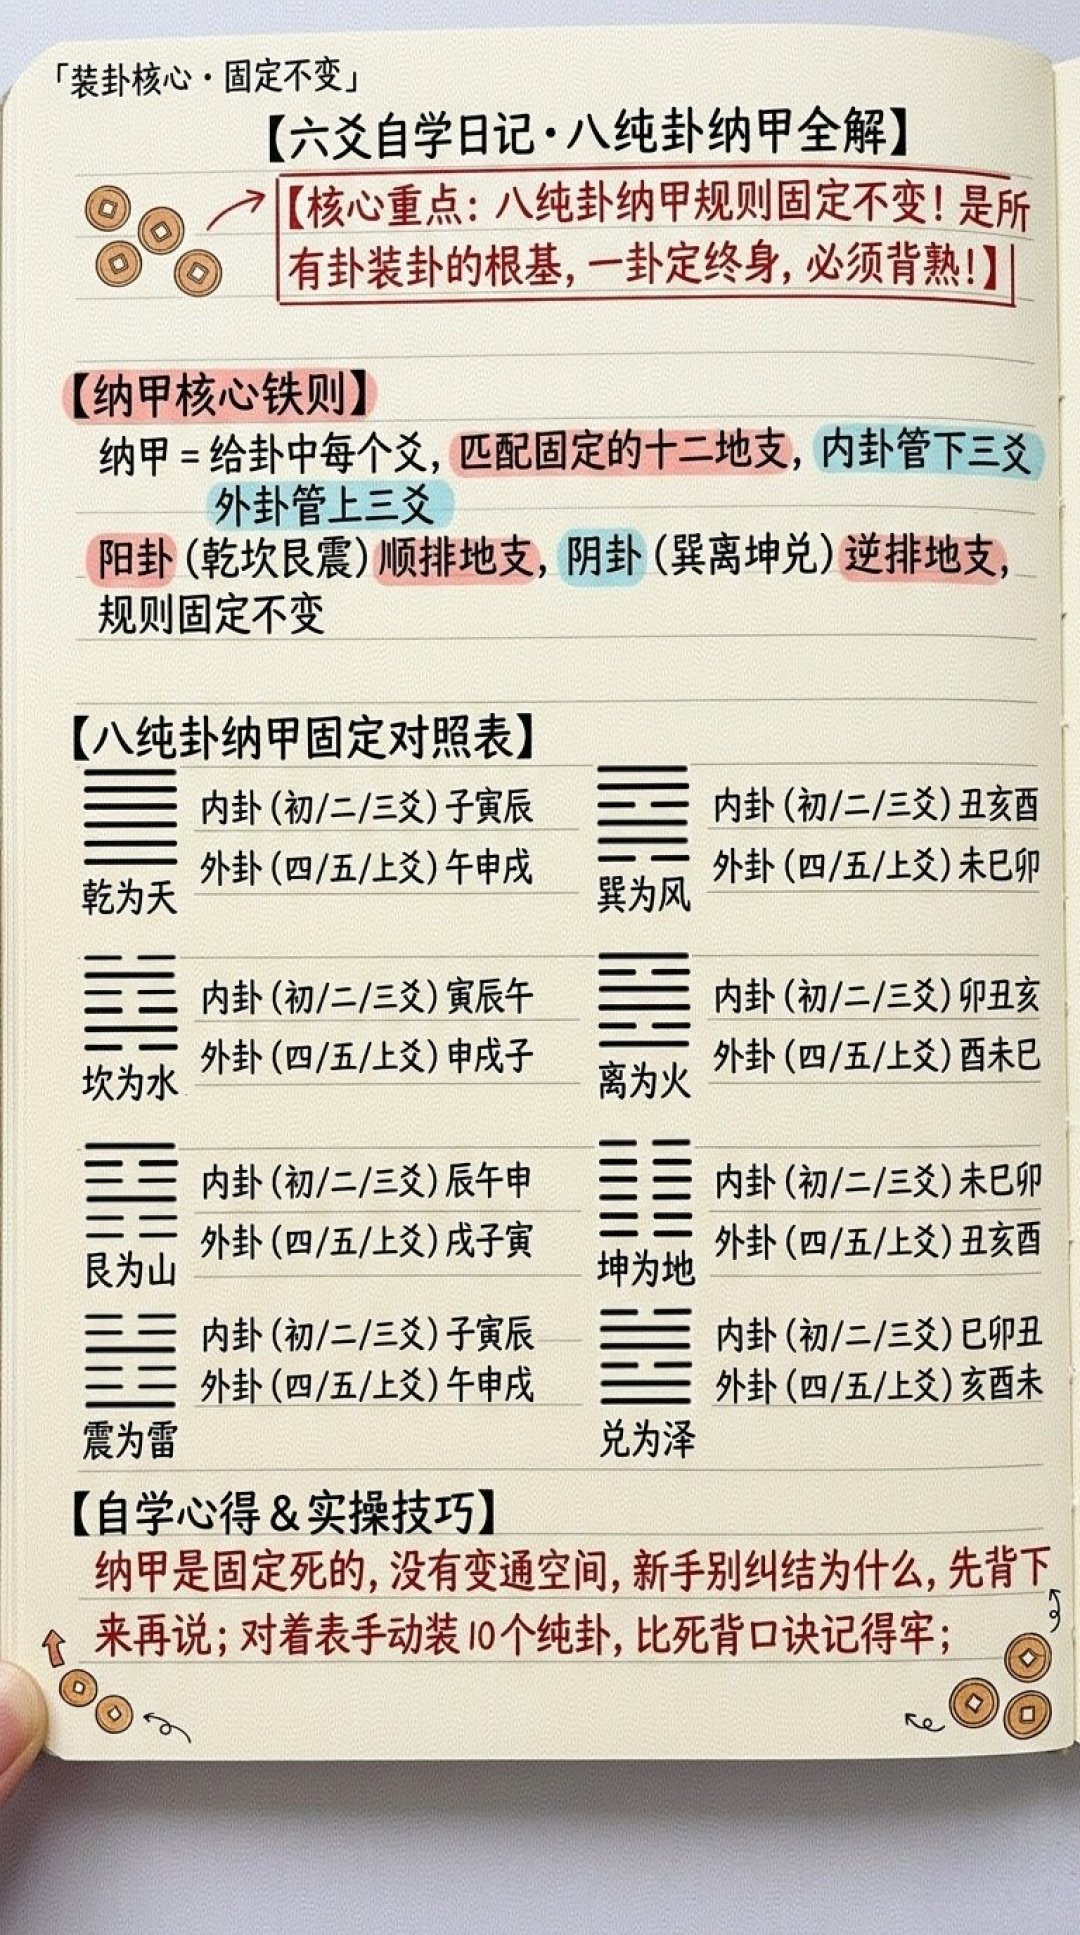 「装卦核心·固定不变」
【六爻自学日记·八纯卦纳甲全解】
【核心重点：八纯卦纳甲规则固定不变！是所
有卦装卦的根基，一卦定终身，必须背熟！】
【纳甲核心铁则】
纳甲=给卦中每个爻，匹配固定的十二地支，内卦管下三爻
外卦管上三爻
阳卦(乾坎艮震)顺排地支，阴卦(巽离坤兑)逆排地支，
规则固定不变
【八纯卦纳甲固定对照表】
内卦(初/二/三爻)子寅辰
外卦(四/五/上爻)午申戌
乾为天
内卦(初/二/三爻)丑亥酉
外卦(四/五/上爻)未巳卯
巽为风
内卦(初/二/三爻)寅辰午
外卦(四/五/上爻)申戌子
坎为水
内卦(初/二/三爻)卯丑亥
外卦(四/五/上爻)酉未巳
离为火
内卦(初/二/三爻)辰午申
外卦(四/五/上爻)戌子寅
艮为山
内卦(初/二/三爻)未巳卯
外卦(四/五/上爻)丑亥酉
坤为地
内卦(初/二/三爻)子寅辰
外卦(四/五/上爻)午申戌
震为雷
内卦(初/二/三爻)巳卯丑
外卦(四/五/上爻)亥酉未
兑为泽
【自学心得&实操技巧】
纳甲是固定死的，没有变通空间，新手别纠结为什么，先背下
来再说；对着表手动装10个纯卦，比死背口诀记得牢；